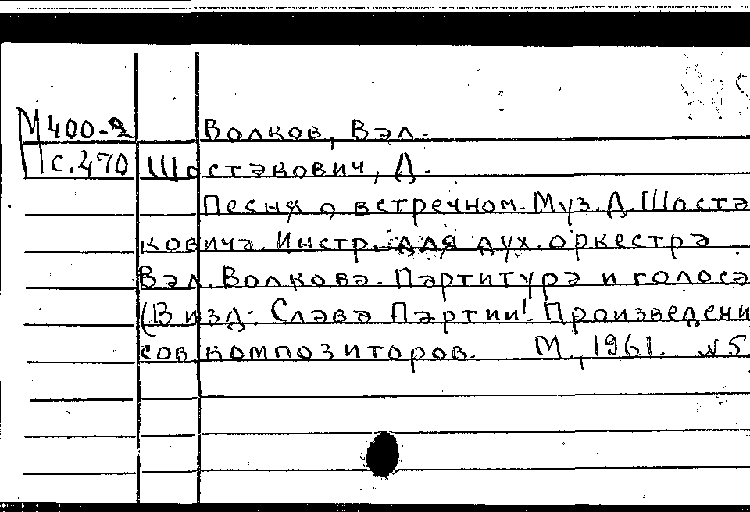 М400-2 Волков, Вал.
с.270 Шостакович, Д.
Песня о встречном. Муз. Д. Шоста
ковича. Инстр. для дух. оркестра
Вал. Волкова. Партитура и голоса
(В изд: Слава Партии! Произведени
сов. композиторов. М., 1961. №5